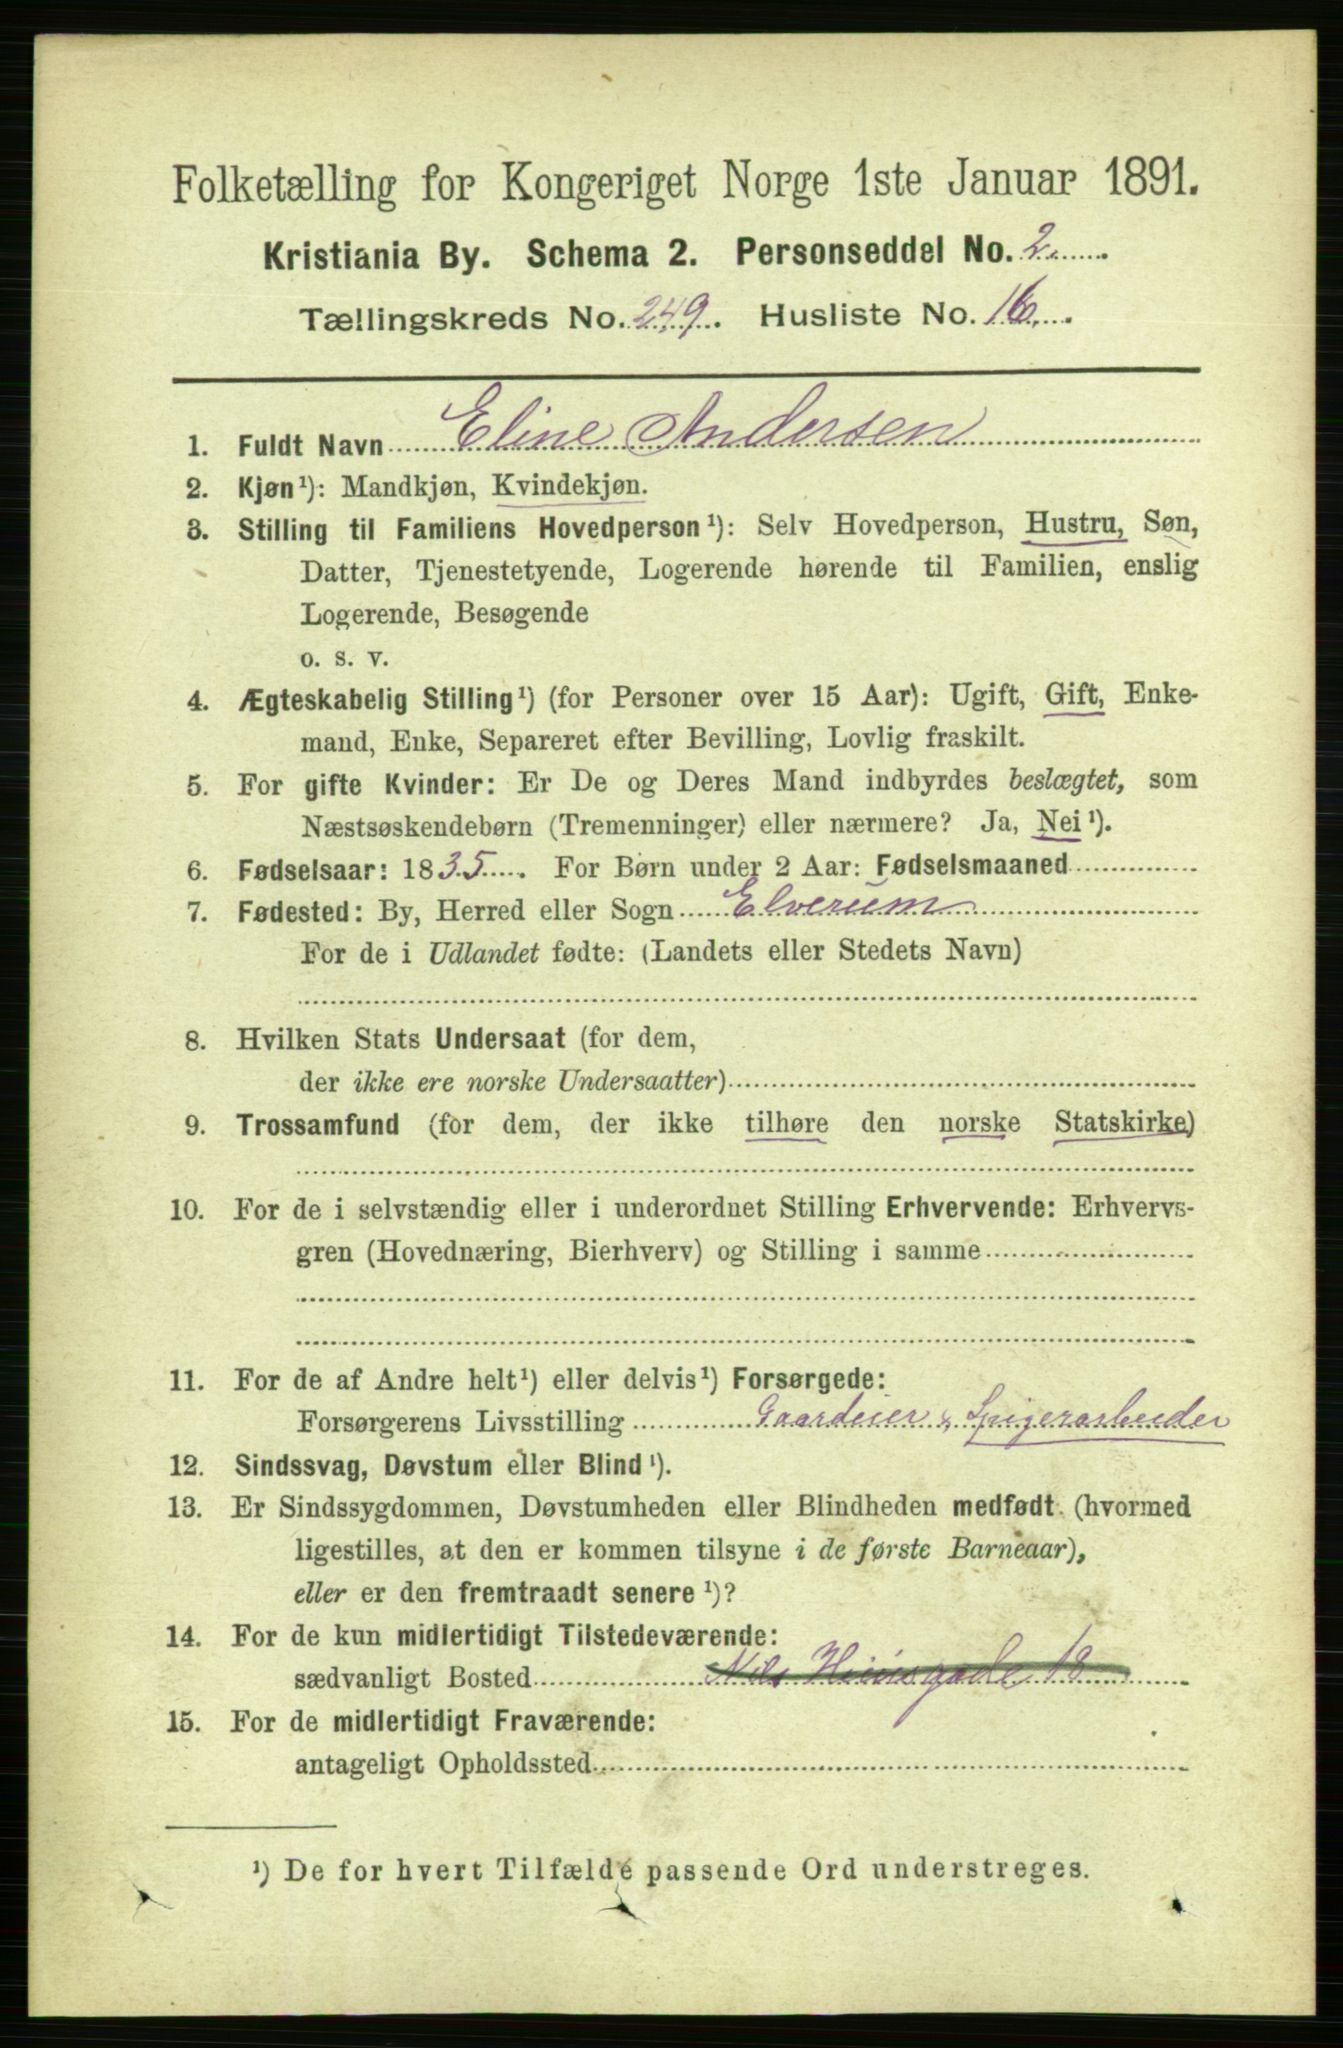 Folketælling for Kongeriget Norge 1ste Januar 1891.
Kristiania By. Schema 2. Personseddel No. 2
Tællingskreds No. 249. Husliste No. 16.
1. Fuldt Navn Eline Andersen
2. Kjøn¹): Mandkjøn, Kvindekjøn.
3. Stilling til Familiens Hovedperson¹): Selv Hovedperson, Hustru, Søn,
Datter, Tjenestetyende, Logerende hørende til Familien, enslig
Logerende, Besøgende
o. s. v.
4. Ægteskabelig Stilling¹) (for Personer over 15 Aar): Ugift, Gift, Enke-
mand, Enke, Separeret efter Bevilling, Lovlig fraskilt.
5. For gifte Kvinder: Er De og Deres Mand indbyrdes beslægtet, som
Næstsøskendebørn (Tremenninger) eller nærmere? Ja, Nei¹).
6. Fødselsaar: 1835. For Børn under 2 Aar: Fødselsmaaned
7. Fødested: By, Herred eller Sogn Elverum
For de i Udlandet fødte: (Landets eller Stedets Navn)
8. Hvilken Stats Undersaat (for dem,
der ikke ere norske Undersaatter)
9. Trossamfund (for dem, der ikke tilhøre den norske Statskirke)
10. For de i selvstændig eller i underordnet Stilling Erhvervende: Erhvervs-
gren (Hovednæring, Bierhverv) og Stilling i samme
11. For de af Andre helt¹) eller delvis¹) Forsørgede:
Forsørgerens Livsstilling Gaardeier & Spigerarbeider
12. Sindssvag, Døvstum eller Blind¹).
13. Er Sindssygdommen, Døvstumheden eller Blindheden medfødt (hvormed
ligestilles, at den er kommen tilsyne i de første Barneaar),
eller er den fremtraadt senere¹)?
14. For de kun midlertidigt Tilstedeværende:
sædvanligt Bosted Nils 18
15. For de midlertidigt Fraværende:
antageligt Opholdssted
¹) De for hvert Tilfælde passende Ord understreges.